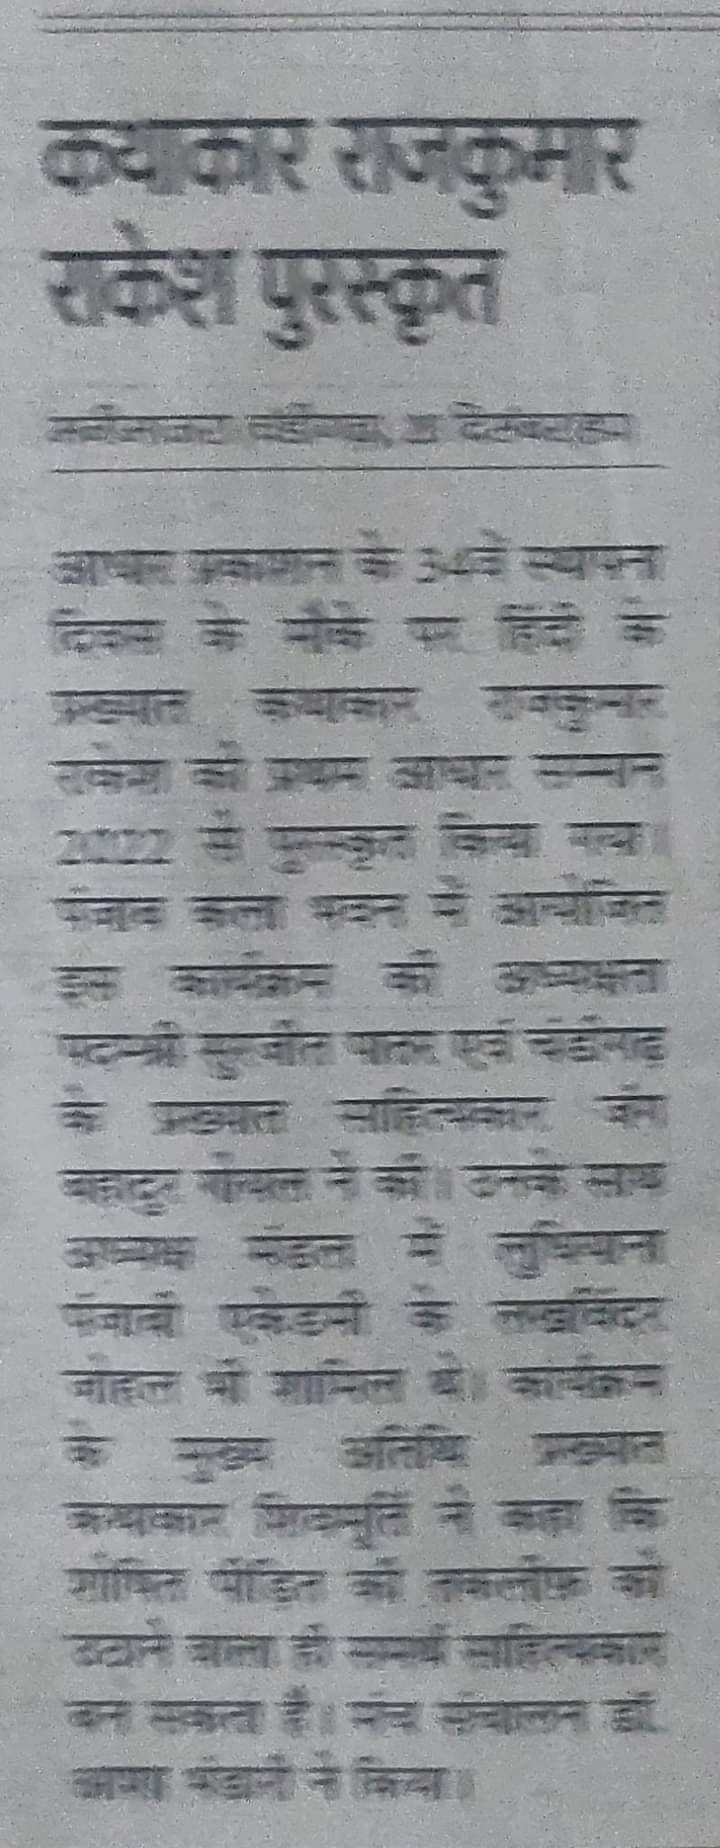 कथाकार राजकुमार
राकेश पुरस्कृत
चंडीगढ़,
आधार प्रकाशन के 34वें स्थापना
दिवस के मौके पर हिंदी के
प्रख्यात कथाकार राजकुमार
राकेश को प्रथम आधार सम्मान
2022 से पुरस्कृत किया गया।
पंजाब कला भवन में आयोजित
इस कार्यक्रम की अध्यक्षता
पद्मश्री सुरजीत पातर एवं चंडीगढ़
के प्रख्यात साहित्यकार जंग
बहादुर गोयल ने की। उनके साथ
अध्यक्ष मंडल में लुधियाना
पंजाबी एकेडमी के लखविंदर
जोहल भी शामिल थे। कार्यक्रम
के मुख्य अतिथि प्रख्यात
कथाकार शिवमूर्ति ने कहा कि
शोषित पीड़ित की तकलीफ को
उठाने वाला ही समर्थ साहित्यकार
बन सकता है। मंच संचालन डॉ.
ने किया।